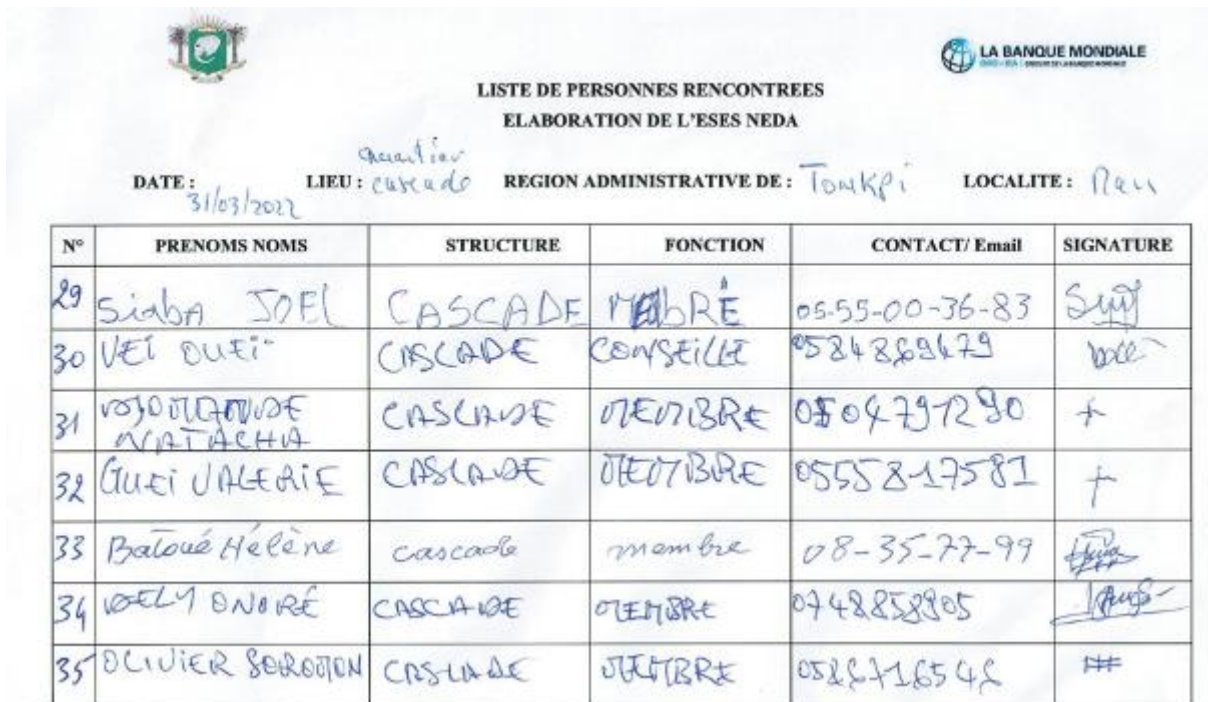 LA BANQUE MONDIALE
LISTE DE PERSONNES RENCONTREES
ELABORATION DE L'ESES NEDA
DATE : 31/03/2022 LIEU : quartier cascade REGION ADMINISTRATIVE DE : Tonkpi LOCALITE : Man
N° PRENOMS NOMS STRUCTURE FONCTION CONTACT/ Email SIGNATURE
29 Siaba JOEL CASCADE 05-55-00-36-83
30 VEI OUEI CASCADE CONSEILLE 0584869479
31 NATACHA CASCADE MEMBRE
32 GUEI VALERIE CASCADE MEMBRE 0555817581
33 Batoué Hélène cascade membre 08-35-77-99
34 DELY ONORÉ CASCADE MEMBRE 0748858905
35 OLIVIER SOROMON CASCADE MEMBRE